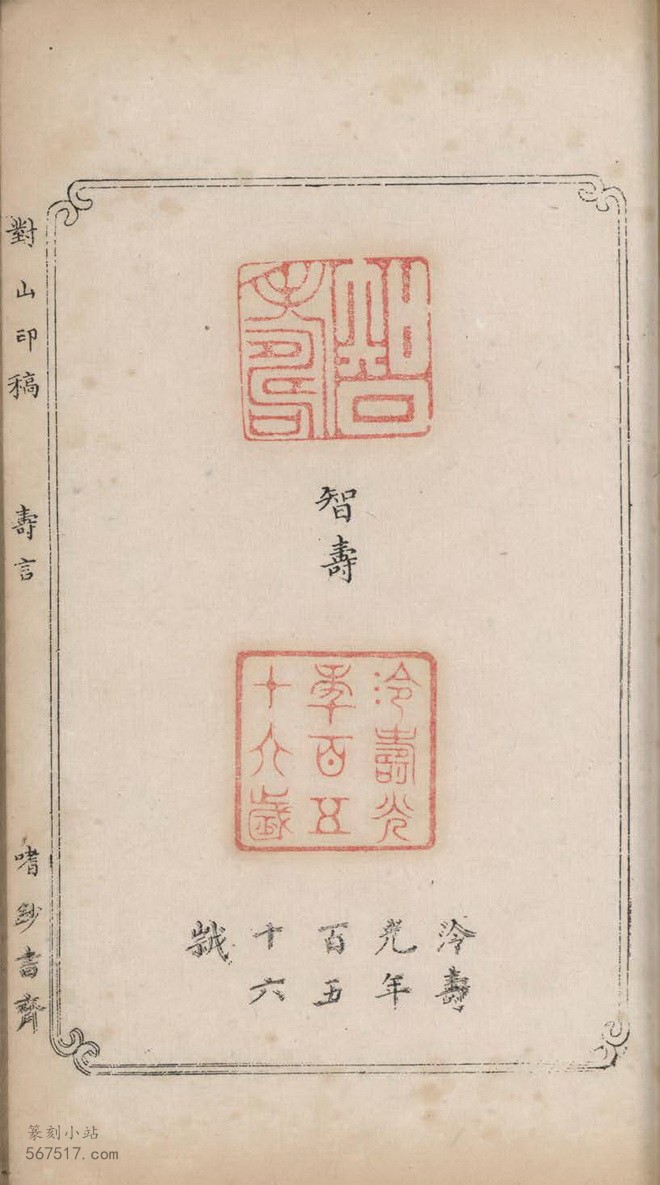 智壽
智壽
泠壽光
年百五
十六歲
泠壽
光年
百五
十六
歲
對山印稿 壽言
嗜鈔書齋
篆刻小站
567517.com